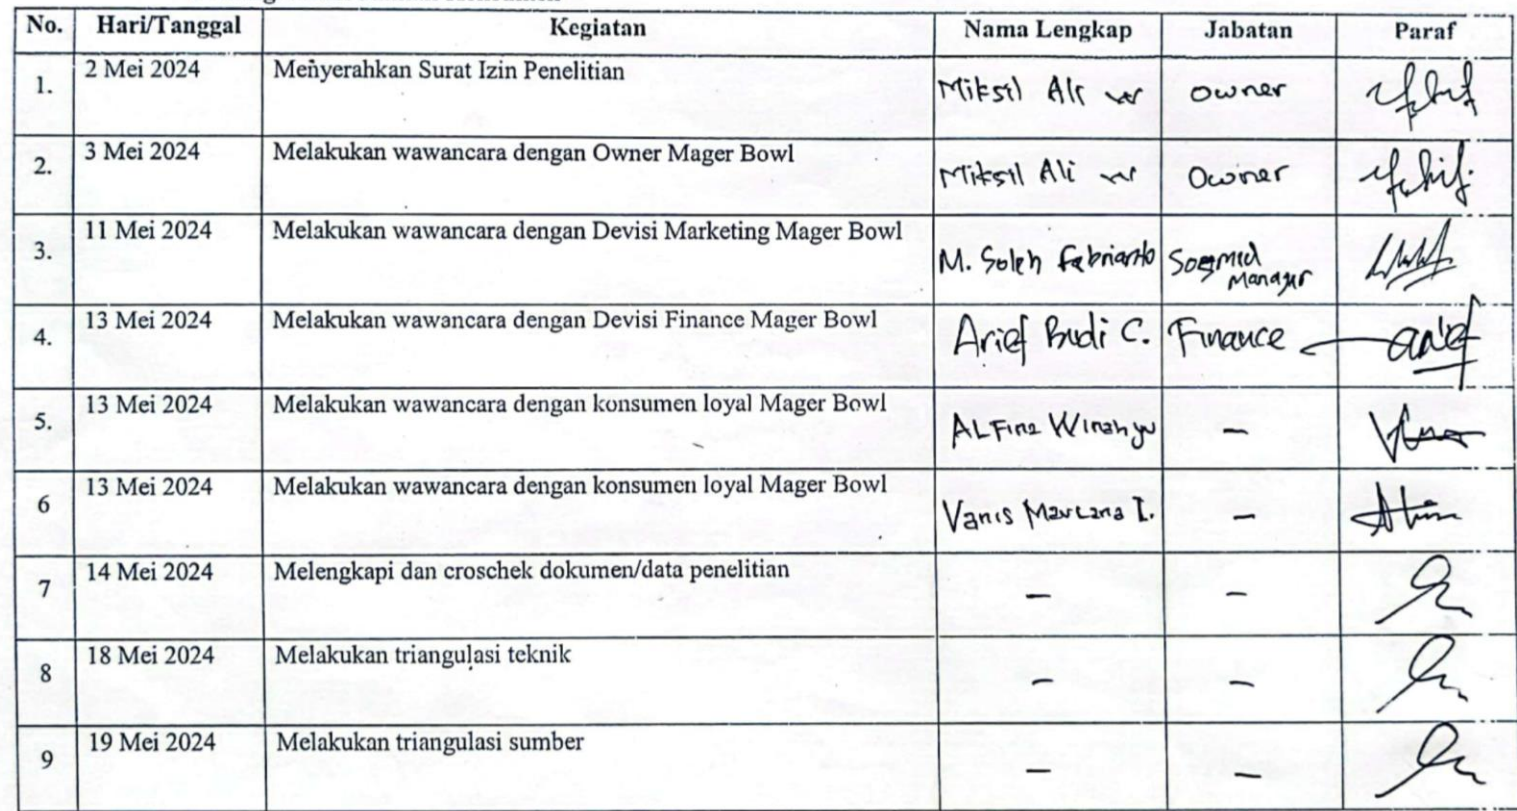 No. Hari/Tanggal Kegiatan Nama Lengkap Jabatan Paraf
1. 2 Mei 2024 Menyerahkan Surat Izin Penelitian Miksil Ali W Owner
2. 3 Mei 2024 Melakukan wawancara dengan Owner Mager Bowl Miksil Ali W Owner
3. 11 Mei 2024 Melakukan wawancara dengan Devisi Marketing Mager Bowl M. Soleh Febrianto Sosmed
Manager
4. 13 Mei 2024 Melakukan wawancara dengan Devisi Finance Mager Bowl Arief Budi C. Finance
5. 13 Mei 2024 Melakukan wawancara dengan konsumen loyal Mager Bowl ALFina Winahyu -
6 13 Mei 2024 Melakukan wawancara dengan konsumen loyal Mager Bowl Vanis Maulana I. -
7 14 Mei 2024 Melengkapi dan croschek dokumen/data penelitian - -
8 18 Mei 2024 Melakukan triangulasi teknik - -
9 19 Mei 2024 Melakukan triangulasi sumber - -